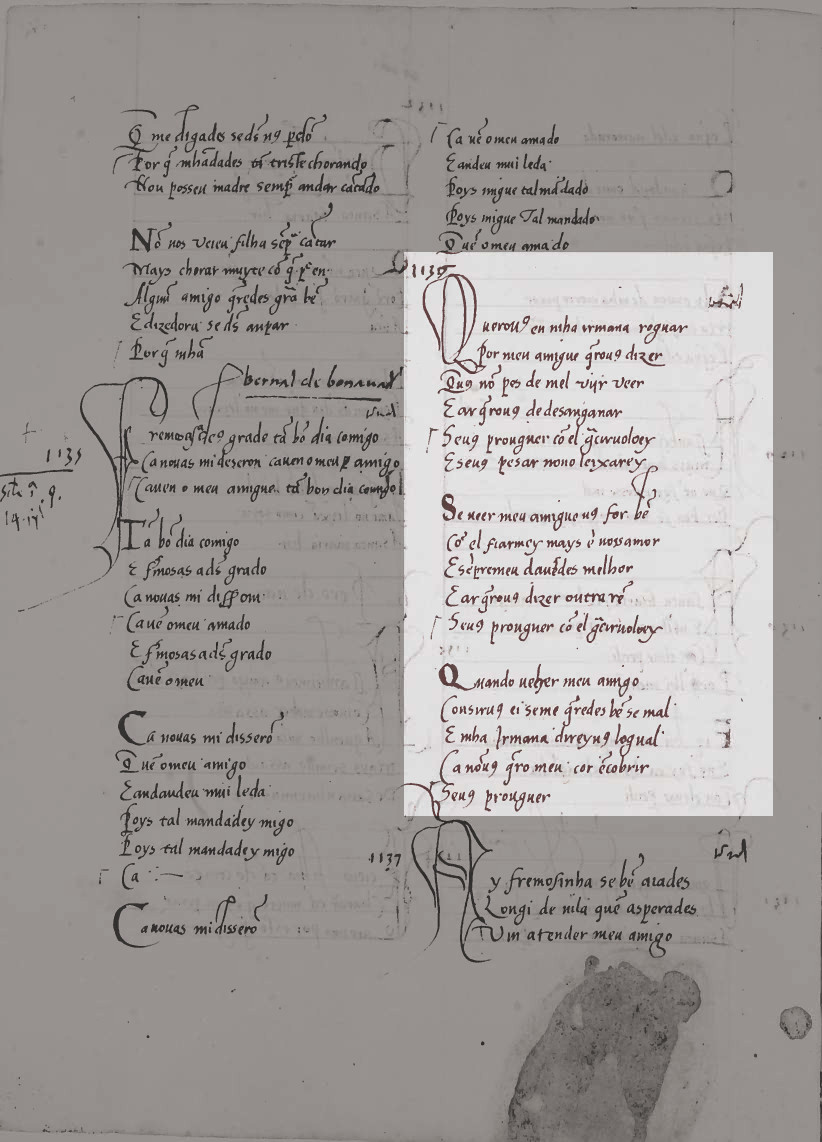 Q̄ me digades sedꝭ nꝰ ꝑdō
Por q̄ mhādades tā triste chorando
Nou posseu madre semp̄ andar cātādo
Nō nos ueieu filha sēp̄ cātar
Mays chorar muyte cō q̄
Alguū amigo q̄redes grā bē
E dizedora se dꝭ anpar
Por q̄ mhā
bernal de bonaual
1135
grade tā bō dia comigo
Ca nouas mi deseron ca uen o meu amigo
Ca uen o meu amigue tā bon dia comigo
Tā bō dia comigo
E fꝰmosas a dꝭ grado
Ca nouas mi disserom
Ca uē o meu amado
E fꝰmosas a dꝭ grado
Ca uē o meu
Ca nouas mi disserō
Quē o meu amigo
E andandeu mui leda
Poys tal mandadey migo
Poys tal mandadey migo
Ca
Ca nouas mi disserō
Ca uē o meu amado
E andeu mui leda
Poys migue tal mādado
Poys migue Tal mandado
Quē o meu amado
1136
Querouꝰ eu mha irmana roguar
Por meu amigue q̄rouꝰ dizer
Quꝰ nō pes de mel uijr ueer
E ar q̄rouꝰ de desanganar
Seuꝰ prouguer cō el ḡcirvoloey
E seuꝰ pesar nono leixarey
Se ueer meu amigue uꝰ for bē
Cō el fiarmey mays ē uossamor
E sēpremeu dauēdes melhor
E ar q̄rouꝰ dizer outra rē
Seuꝰ prouguer cō el ḡcirvoloey
Quando ueher meu amigo
Consiruꝰ ei se me q̄redes bē se mal
E mha Jrmana direyuꝰ logual
Ca nō uꝰ q̄ro meu cor ēcobrir
Seuꝰ prouguer
1137
Ay fremosinha se bē aiades
Longi de uila quē asperades
Vim atender meu amigo